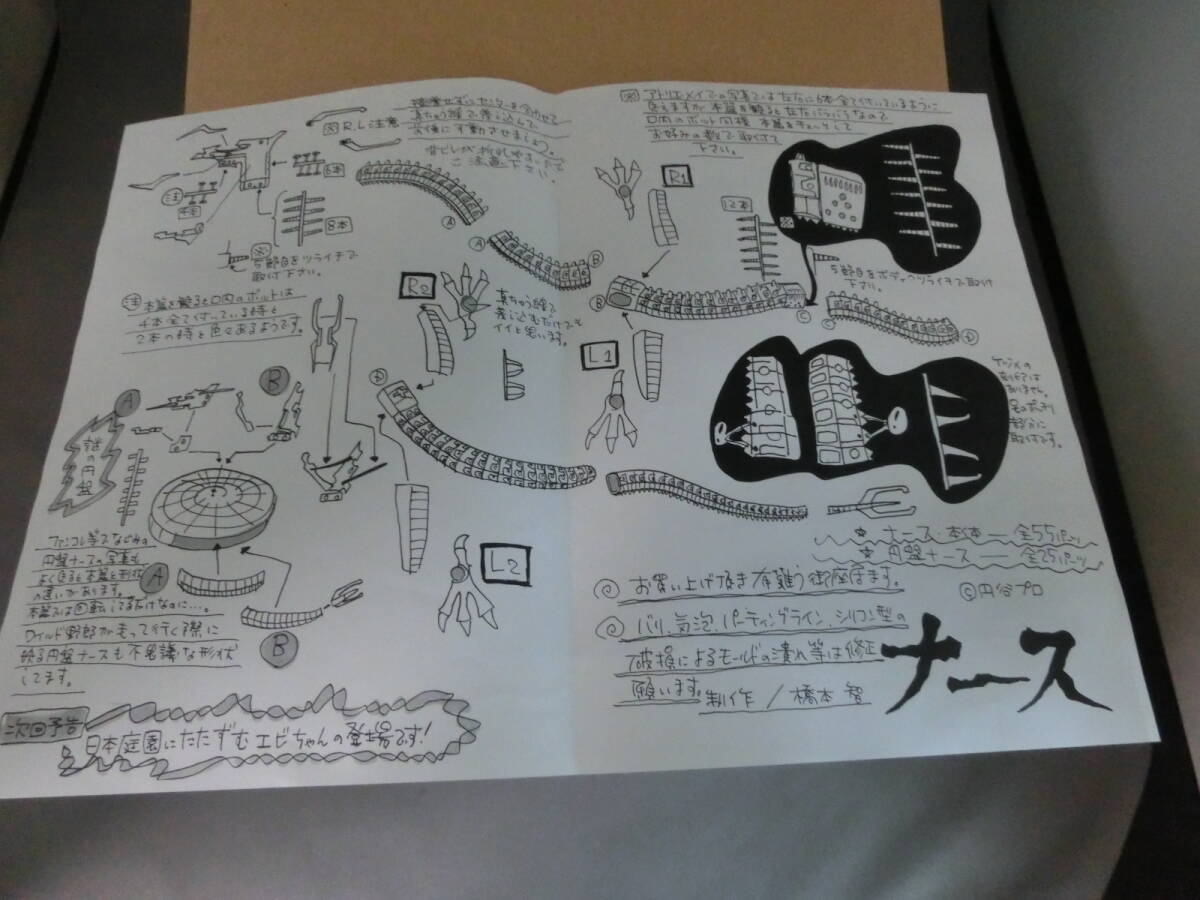 接着せずにセンターを合わせて
真ちゅう線で差し込んで
ご注意下さい。
※R.L注意
6本
注
8本
※
5節目をツライチで
取付下さい。
注 本篇を観ると口内のボルトは
4本全て付いている時と
2本の時と色々あるようです。
※ アトリエメイアの写真では左右に6本全て付いているように
見えますが本篇を観ると左右バラバラなので
口内のボルト同様、本篇をチェックして
お好みの数で取付て
下さい。
R1
12本
※
5節目をボディへツライチで取付
下さい。
A
A
B
B
C
C
D
R2
真ちゅう線で
差し込むだけでも
イイと思います。
L1
D
取付です。
A
B
謎の円盤
ファンコレ等でおなじみの
円盤ナースの写真も
よく見ると本篇と形状
の違いがあります。
本篇では回転してるだけなのに…。
ワイルド野郎がもって行く際に
観る円盤ナースも不思議な形状
してます。
A
B
L2
☆ ナース本体 — 全55パーツ
☆ 円盤ナース — 全25パーツ
◎ お買い上げ頂き有難う御座居ます。
©円谷プロ
◎ バリ、気泡、パーティングライン、シリコン型の
破損によるモールドの潰れ等は修正
願います。
制作/橋本 智
ナース
次回予告
日本庭園にたたずむエビちゃんの登場です!